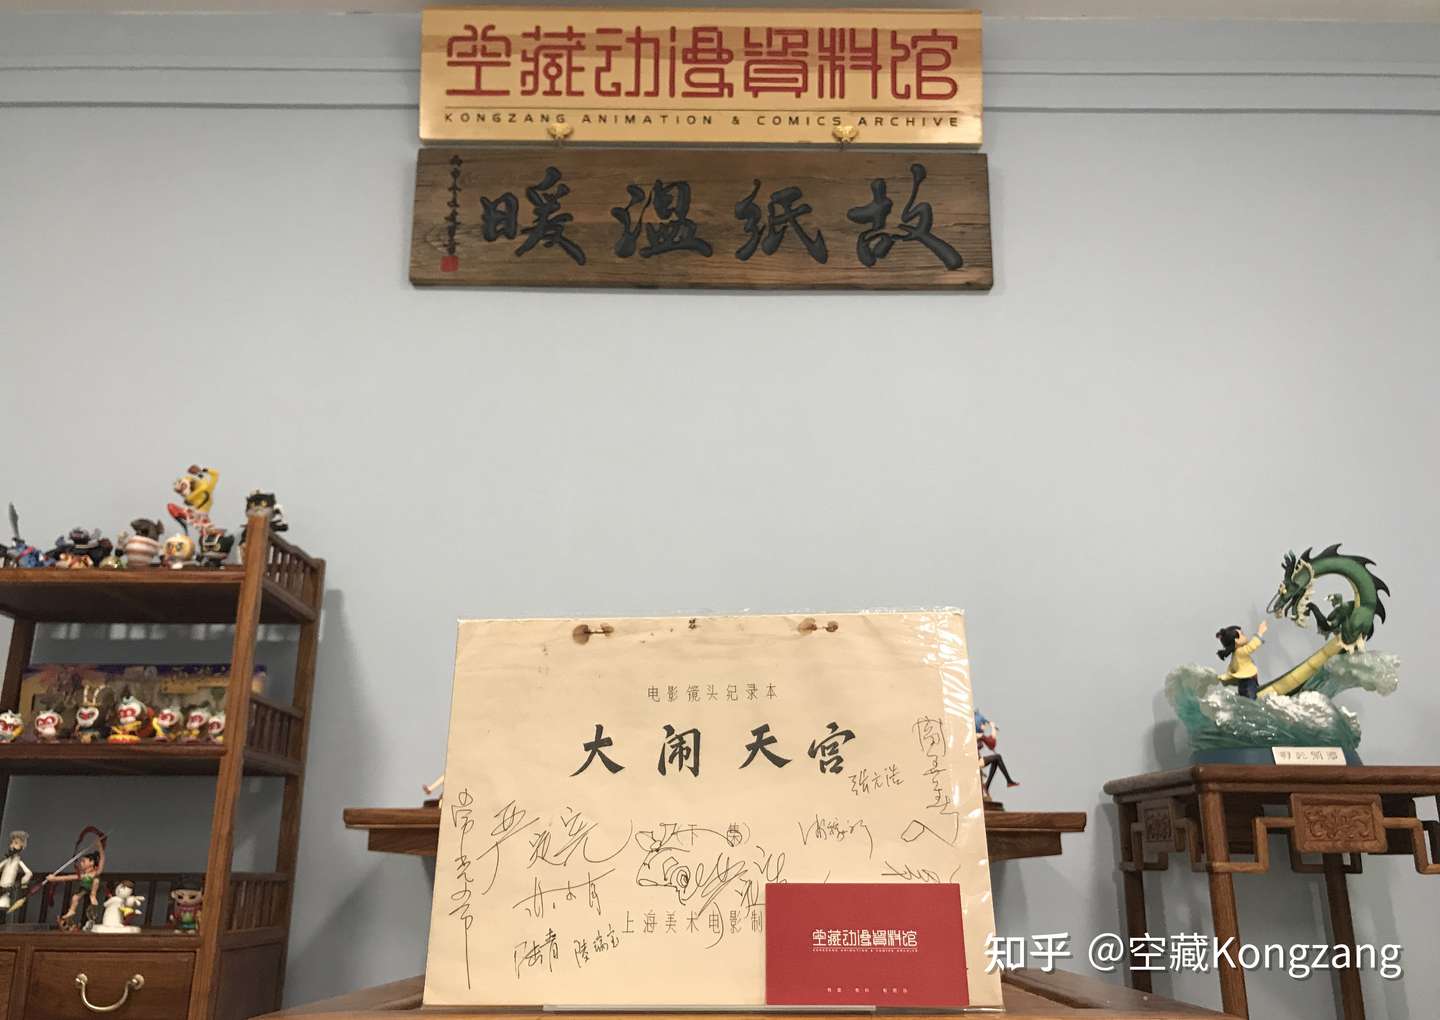 空藏动漫資料馆
KONGZANG ANIMATION & COMICS ARCHIVE
故紙溫暖
电影镜头纪录本
大闹天宫
张光浩
严定宪
林文肖
陆青
上海美术电影制
空藏动漫資料馆
KONGZANG ANIMATION & COMICS ARCHIVE
知乎 @空藏Kongzang